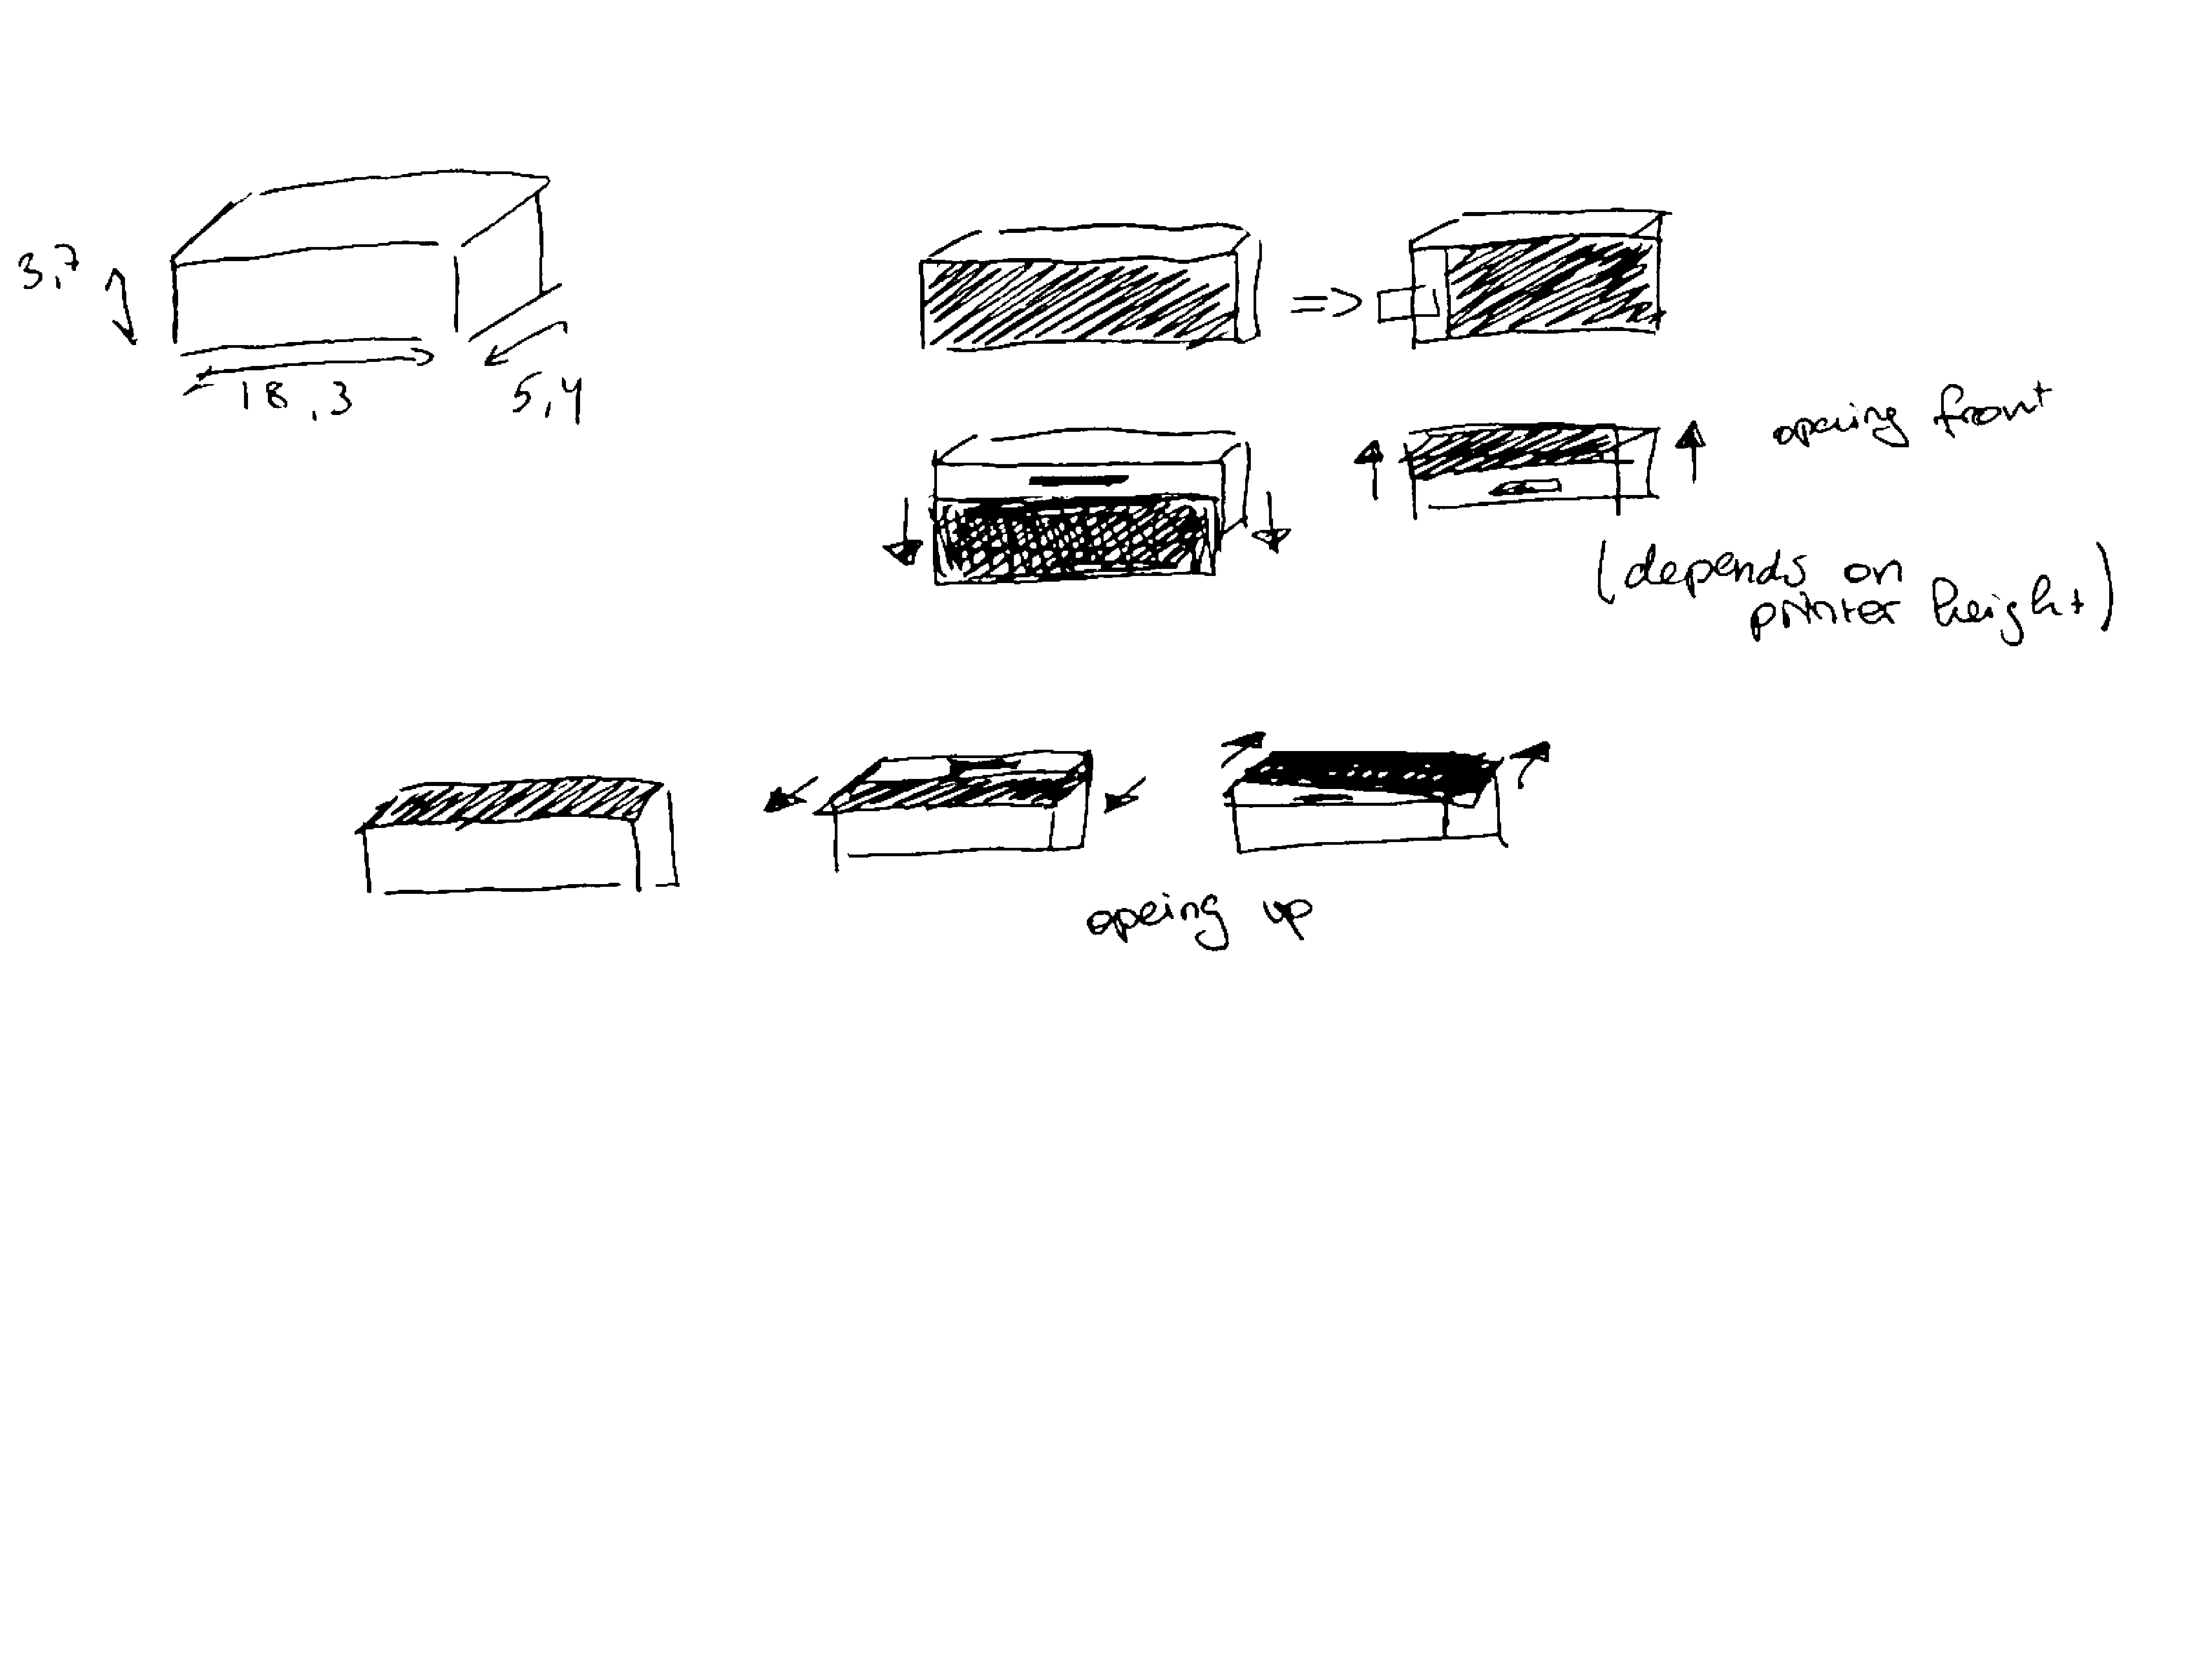 3,7
18,3
5,4
opeing front
(depends on
printer height)
opeing up